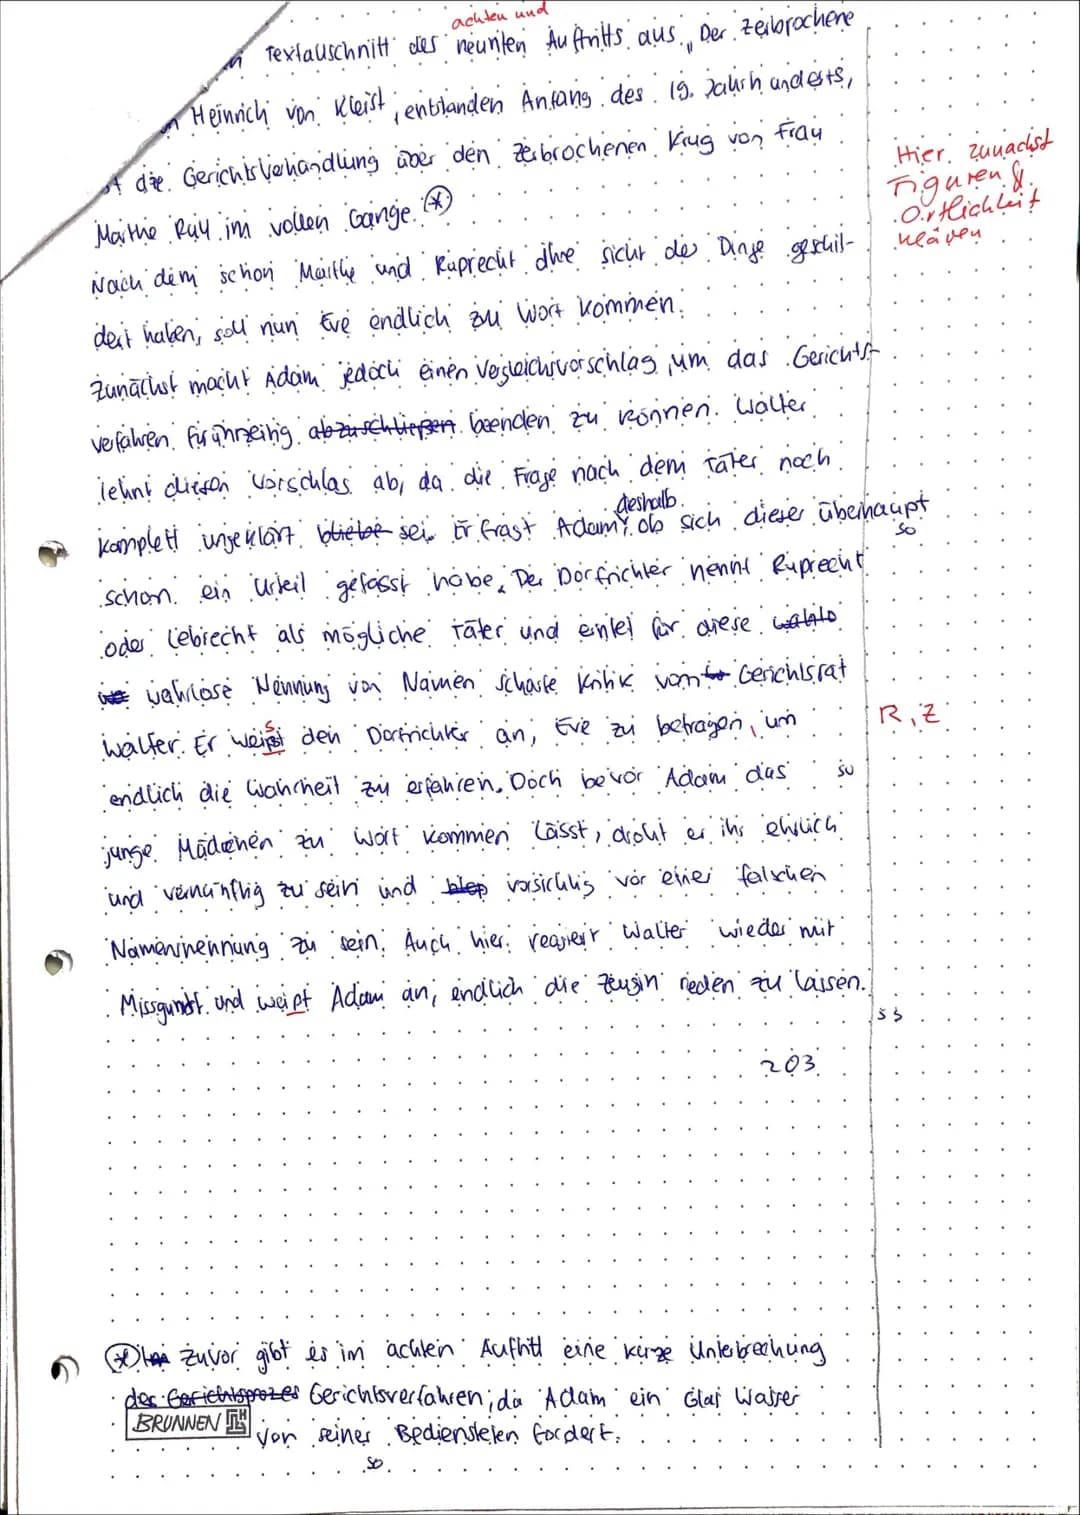 achten und
Textauschnitt des neunten Auftritts aus „Der zerbrochene
Heinrich von Kleist, entstanden Anfang des 19. Jahrhunderts,
st die Gerichtsverhandlung über den zerbrochenen Krug von Frau
Marthe Rull im vollen Gange. (*)
Hier zunächst
Figuren &
Örtlichkeit
klären
Nach dem schon Marthe und Ruprecht ihre Sicht der Dinge geschil-
dert haben, soll nun Eve endlich zu Wort kommen.
Zunächst macht Adam jedoch einen Vergleichsvorschlag, um das Gerichts-
verfahren frühzeitig abzuschließen beenden zu können. Walter
lehnt diesen Vorschlag ab, da die Frage nach dem Täter noch
deshalb
komplett ungeklärt bliebe sei. Er fragt Adam, ob sich dieser überhaupt
so
schon ein Urteil gefasst habe. Der Dorfrichter nennt Ruprecht
oder Lebrecht als mögliche Täter und erntet für diese wahllo
wahllose Nennung von Namen scharfe Kritik vom Gerichtsrat
R, Z
s
Walter. Er weißt den Dorfrichter an, Eve zu befragen, um
endlich die Wahrheit zu erfahren. Doch bevor Adam das
su
junge Mädchen zu Wort kommen lässt, droht er ihr ehrlich
und vernünftig zu sein und vorsichtig vor einer falschen
Namensnennung zu sein. Auch hier reagiert Walter wieder mit
Missgunst und weißt Adam an, endlich die Zeugin reden zu lassen.
53
203
(*) Zuvor gibt es im achten Auftritt eine kurze Unterbrechung
des Gerichtsprozes Gerichtsverfahren, da Adam ein Glas Wasser
BRUNNEN
von seiner Bediensteten fordert.
so